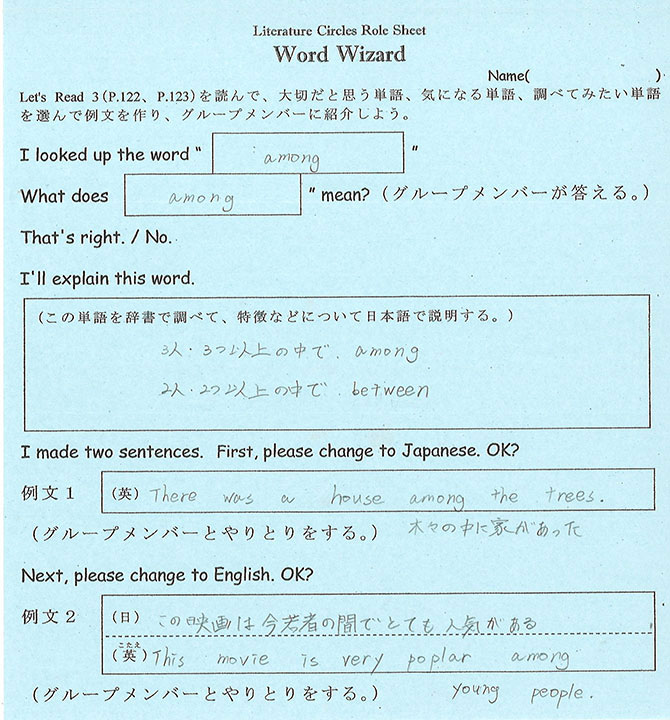 Literature Circles Role Sheet
Word Wizard
Name( )
Let's Read 3(P.122、P.123)を読んで、大切だと思う単語、気になる単語、調べてみたい単語
を選んで例文を作り、グループメンバーに紹介しよう。
I looked up the word “ among ”
What does among ” mean?(グループメンバーが答える。)
That's right. / No.
I'll explain this word.
(この単語を辞書で調べて、特徴などについて日本語で説明する。)
3人・3つ以上の中で. among
2人・2つ以上の中で. between
I made two sentences. First, please change to Japanese. OK?
例文1 (英) There was a house among the trees.
(グループメンバーとやりとりをする。) 木々の中に家があった
Next, please change to English. OK?
例文2 (日) この映画は今若者の間でとても人気がある
こたえ
(英) This movie is very poplar among
(グループメンバーとやりとりをする。) young people.